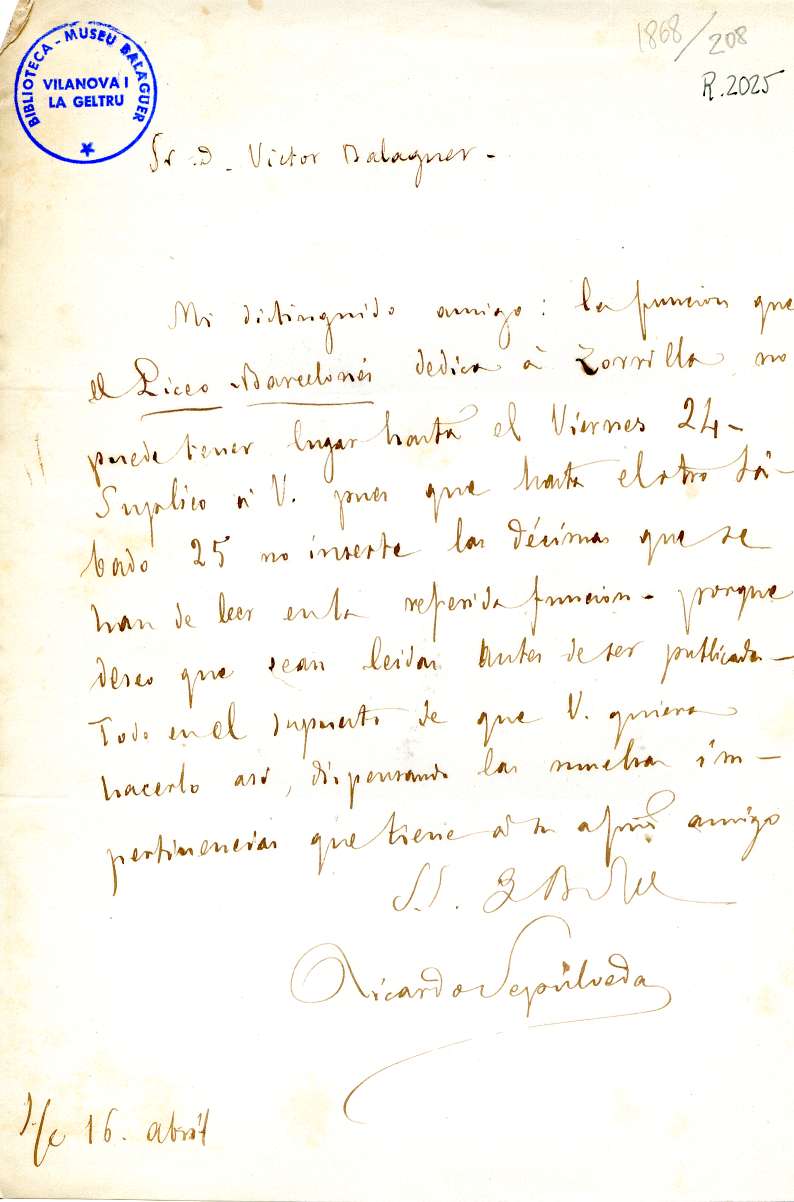 BIBLIOTECA - MUSEU BALAGUER
VILANOVA I
LA GELTRU
1868/208
R. 2025
Sr. D. Victor Balaguer -
Mi distinguido amigo: la funcion que
el Liceo Barcelonés dedica à Zorrilla no
puede tener lugar hasta el Viernes 24 -
Suplico à V. pues que hasta el otro Sá-
bado 25 no inserte las décimas que se
han de leer en la referida funcion - porque
deseo que sean leidas antes de ser publicadas -
Todo en el supuesto de que V. quiera
hacerlo asi, dispensando las muchas im-
pertinencias que tiene à su afmo amigo
S.S. Q B S M
Ricardo Sepúlveda
S/c 16. abril